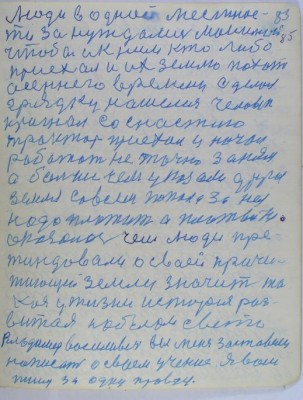 Люди в одной местнос- 83
ти за нуждалис машиной 85
чтоба к ним кто либо
приехал и их землю
осеннего времени сделал
нашелся человек
со снастию
трактор приехал и начал
работат не точно
а болши чем указали другая
земля совсем За неё
надо платить а платит
оказалос чем люди пре-
тиндовали о своей причи-
земли значит та-
кая у жизни история раз-
витая на белом свете
Владимер василивич вы меня заставили
написат о своем учение я вам
пишу за одну правду.